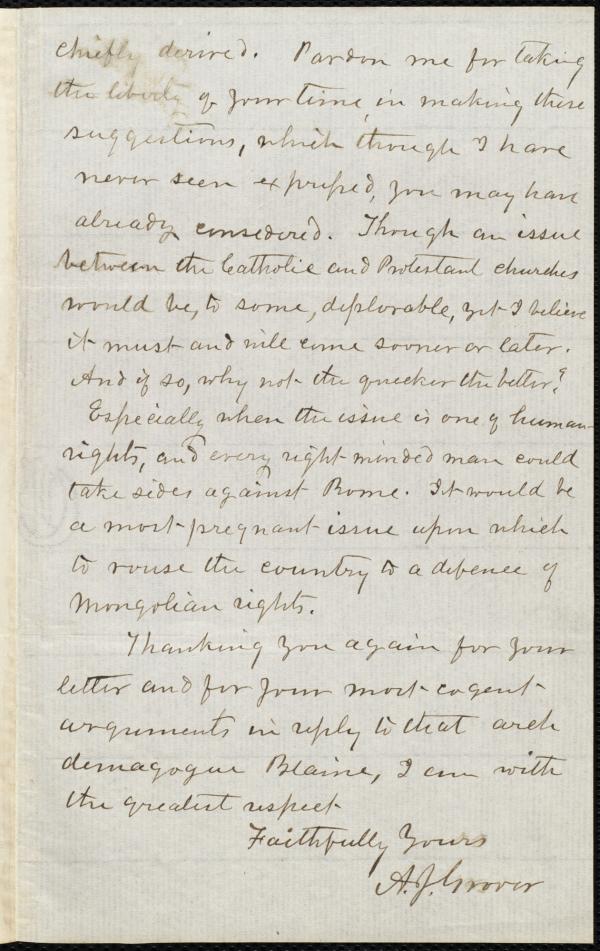 chiefly derived. Pardon me for taking
the liberty of your time, in making these
suggestions, which though I have
never seen expressed, you may have
already considered. Though an issue
between the Catholic and Protestant churches
would be, to some, deplorable, yet I believe
it must and will come sooner or later.
And if so, why not the quicker the better?
Especially when the issue is one of human-
rights, and every right minded man could
take sides against Rome. It would be
a most pregnant issue upon which
to rouse the country to a defence of
Mongolian rights.
Thanking you again for your
letter and for your most cogent
arguments in reply to that arch
demagogue Blaine, I am with
the greatest respect
Faithfully Yours
A. J. Grover